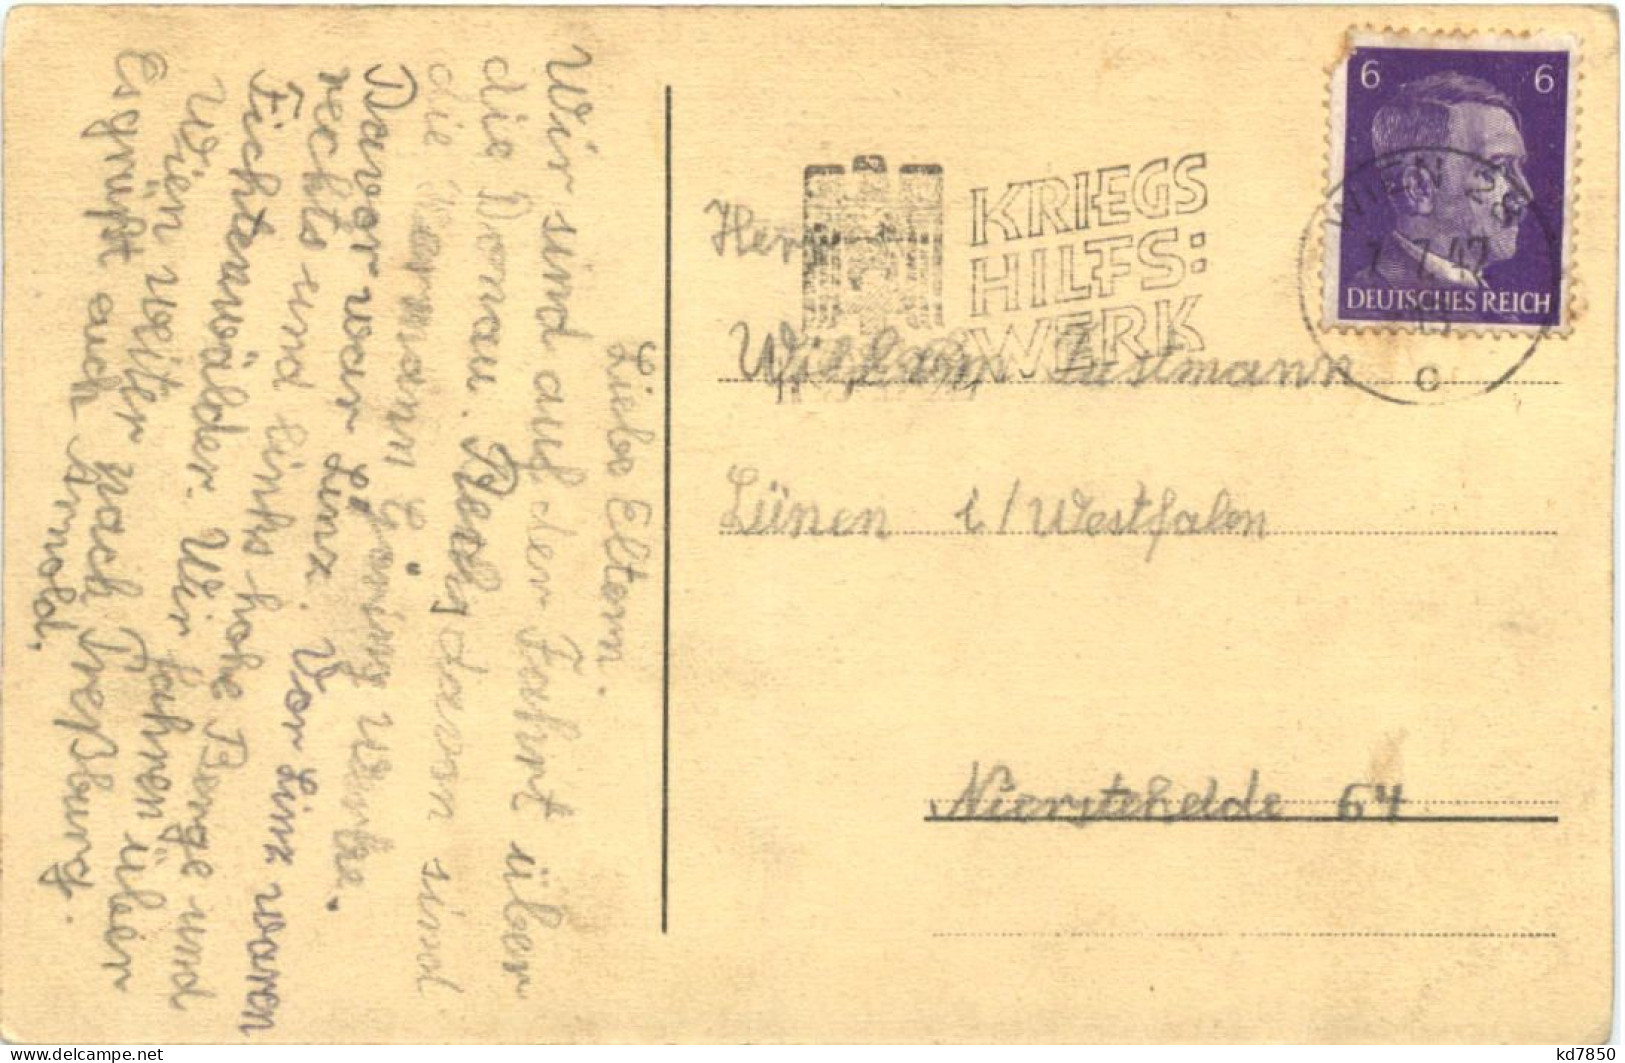 Liebe Eltern.
Wir sind auf der Fahrt über
die Donau. Rechts davon sind
die Hermann Göring Werke.
Davor war Linz. Vor Linz waren
rechts und links hohe Berge und
Fichtenwälder. Wir fahren über
Wien weiter nach Preßburg.
Es grüßt euch Arnold.
6 6
DEUTSCHES REICH
WIEN
7.7.42
c
KRIEGS
HILFS:
WERK
Herr
Wilhelm
Lünen i/Westfalen
64
kd7850